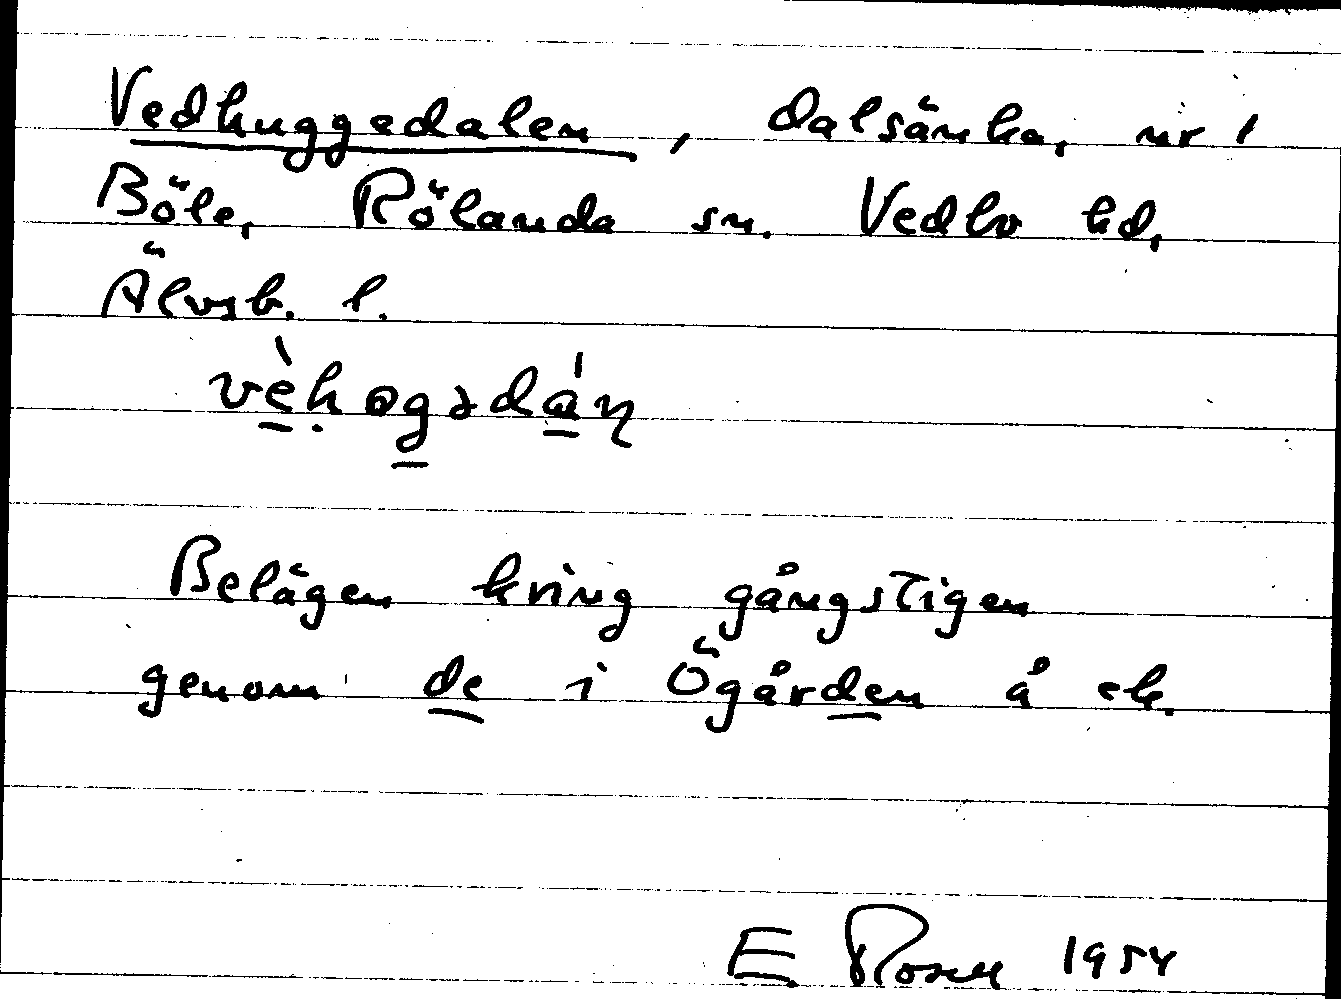 Vedhuggedalen, dalsänka, nr 1
Böle, Rölanda sn. Vedbo hd,
Älvsb. l.
vèhogədán
Belägen kring gångstigen
genom de i Ögården å ek.
E. Rosen 1954